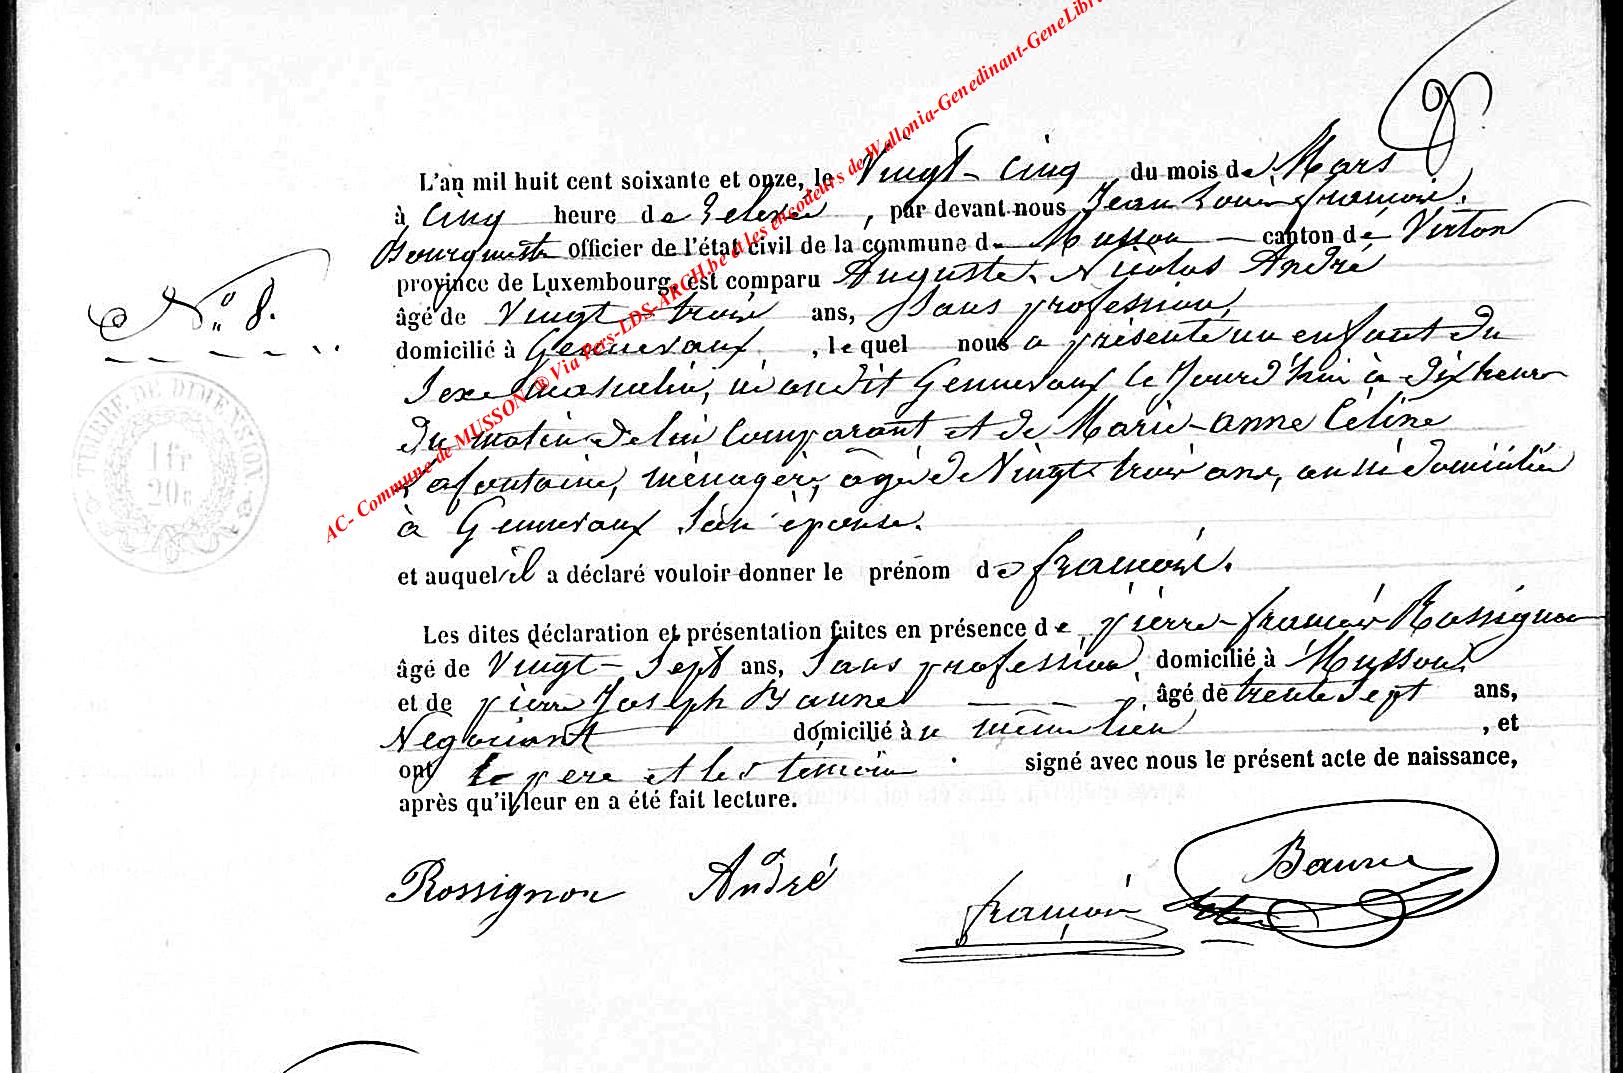 L'an mil huit cent soixante et onze, le Vingt-cinq du mois de Mars
à Cinq heure de relevée, par devant nous Jean Louis françois,
Bourgmestre officier de l'état civil de la commune de Musson canton de Virton
province de Luxembourg, est comparu Auguste-Nicolas André
N° 8.
âgé de Vingt-trois ans, Sans profession,
domicilié à Gennevaux, lequel nous a présenté un enfant du
Sexe Masculin, né audit Gennevaux le Jourd'hui à dix heures
du matin de lui Comparant et de Marie-anne Céline
Lafontaine, ménagère, agée de Vingt trois ans, aussi domiciliée
à Gennevaux Son épouse.
et auquel il a déclaré vouloir donner le prénom de françois.
Les dites déclaration et présentation faites en présence de pierre-françois Rossignon
âgé de Vingt-Sept ans, Sans profession, domicilié à Musson,
et de pierre Joseph Baune, âgé de trente Sept ans,
Négociant domicilié à même lieu, et
ont le père et les témoins signé avec nous le présent acte de naissance,
après qu'il leur en a été fait lecture.
Rossignon André françois Baune
TIMBRE DE DIMENSION
1 fr
20c
AC- Commune de MUSSON ® Via Pers-LDS-ARCH.be & les encodeurs de Wallonia-Genedinant-GeneLibr